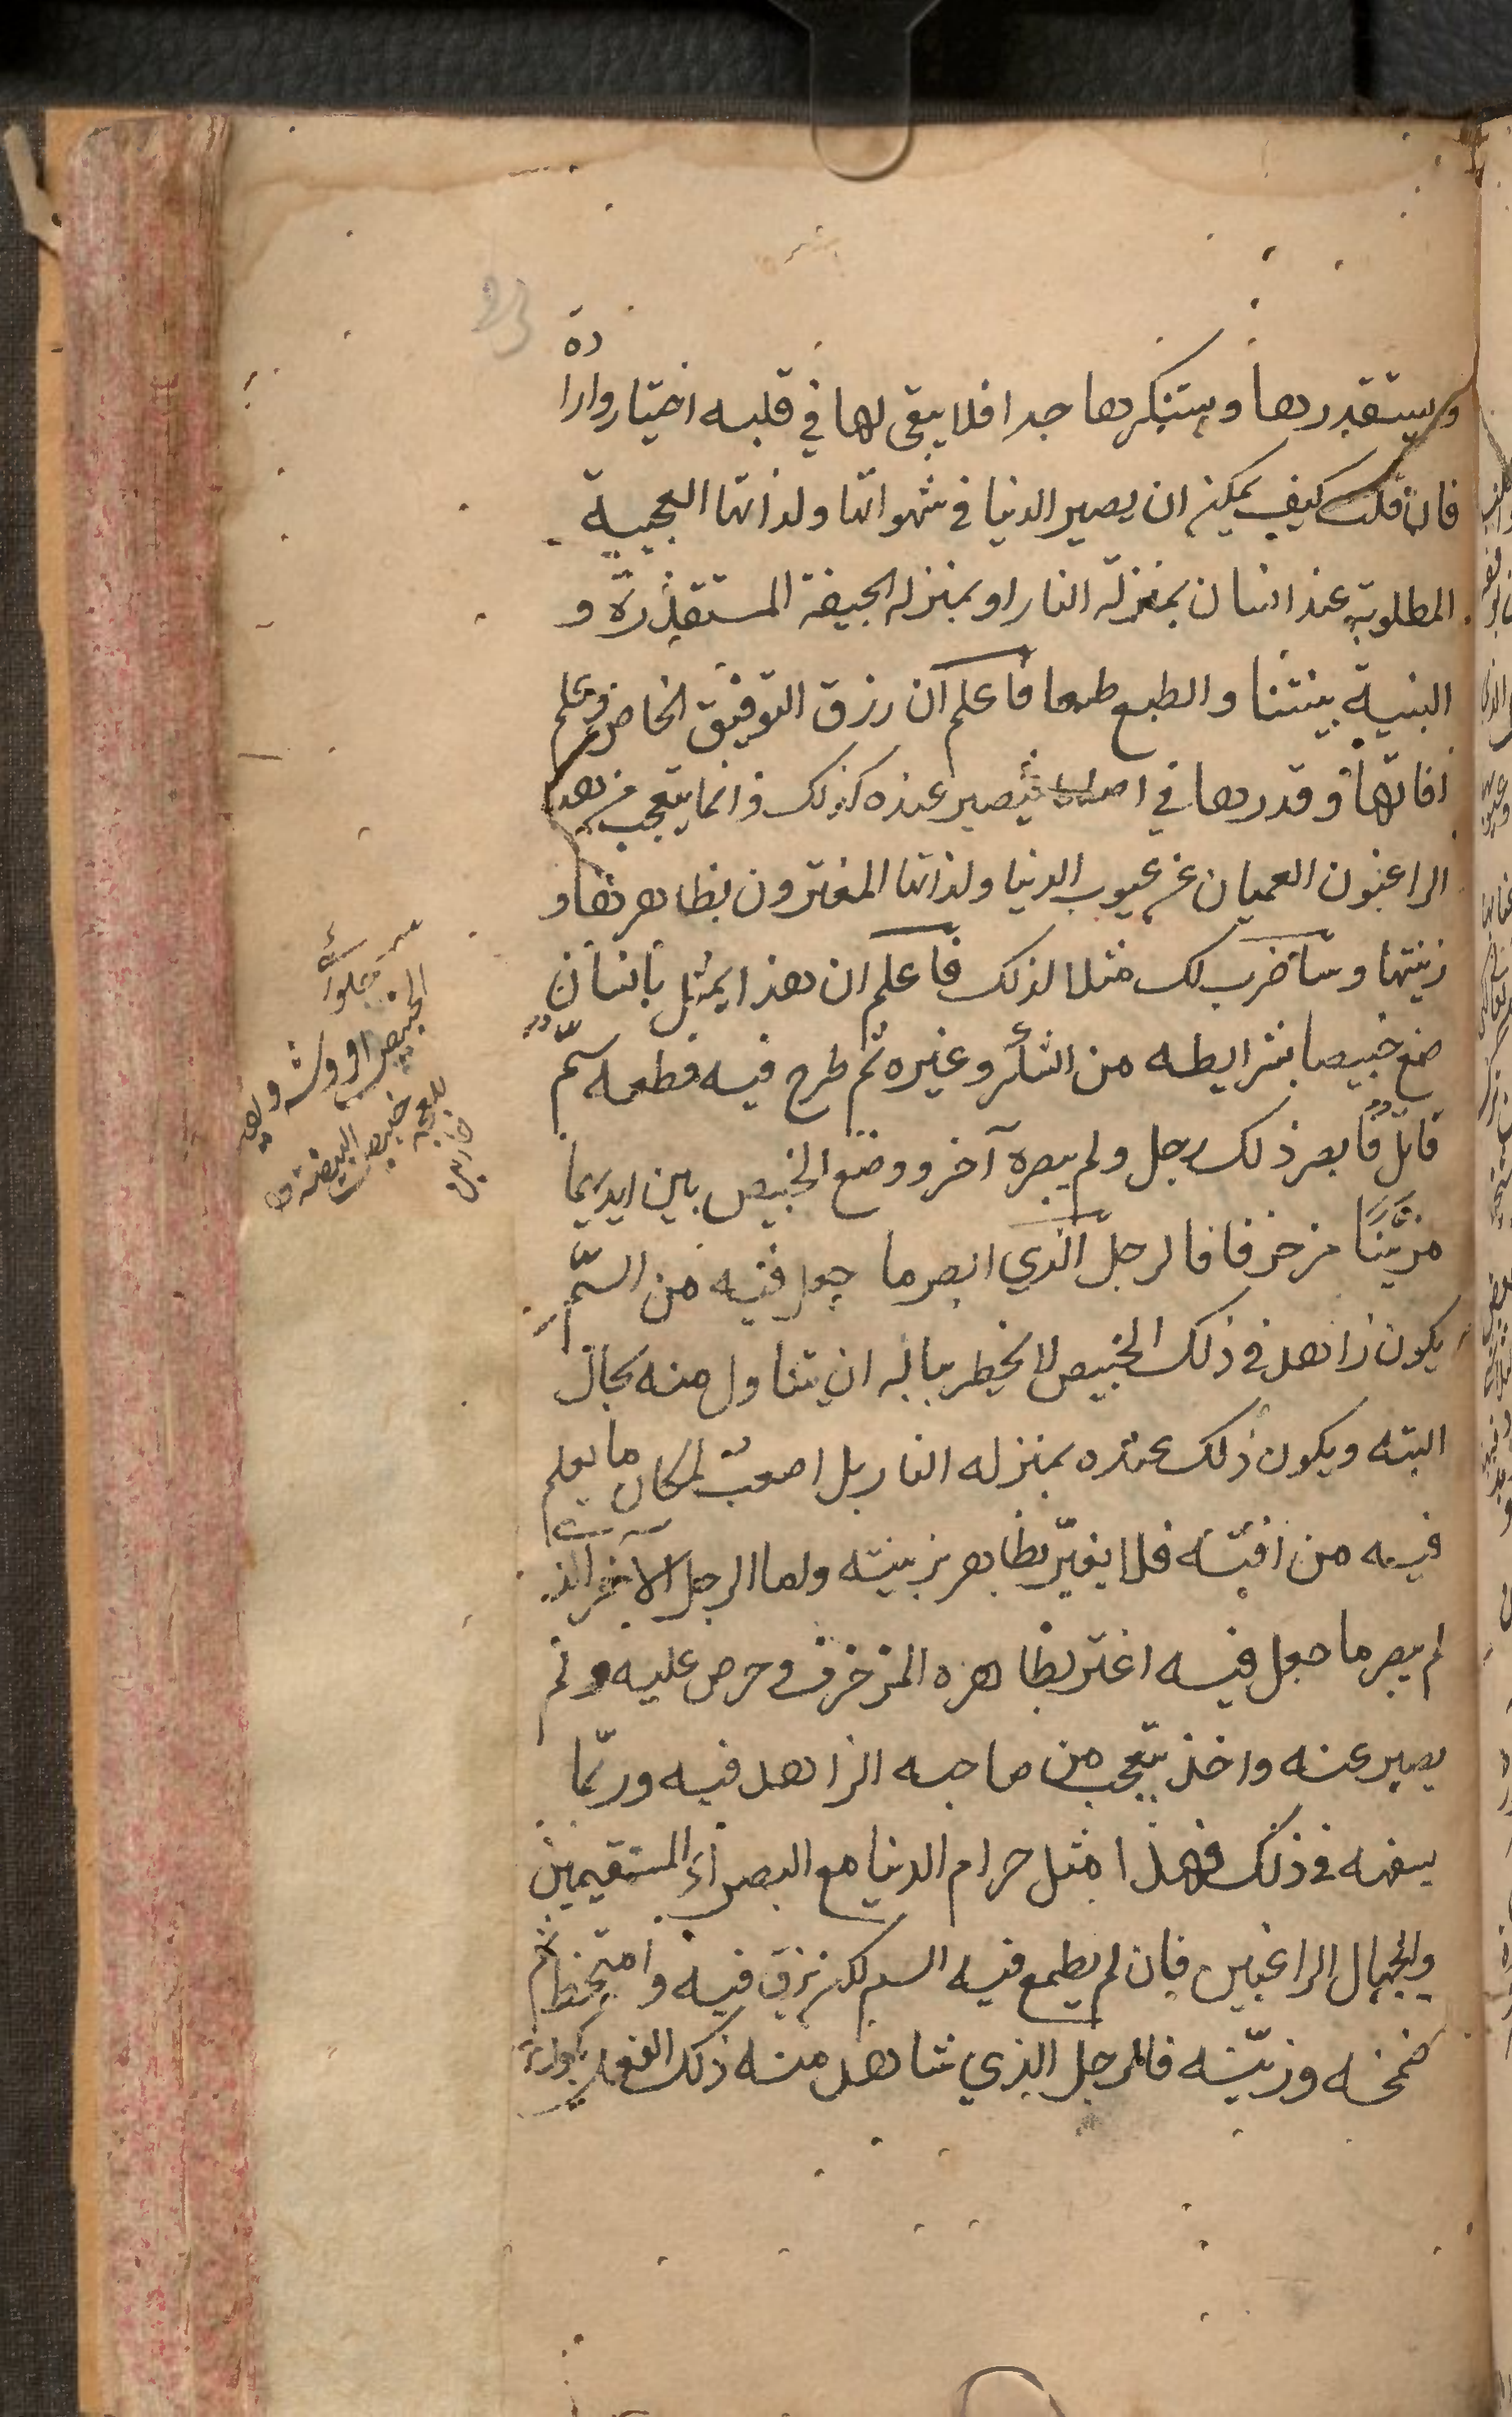 ويستقذرها ويستنكرها جدا فلا يبقى لها في قلبه اختيار وارادة
فان قلت كيف يمكن ان يصير الدنيا في شهواتها ولذاتها العجيبة
المطلوبة عند انسان بمنزلة النار او بمنزله الجيفة المستقذرة و
البنية بينتنا والطبع طبعا فاعلم ان رزق التوفيق الخاص وعلم
افاتها وقدرها في اصلها يصير عنده كذلك وانما يتعجب من هذا
الراغبون العميان عن عيوب الدنيا ولذاتها المغترون بظاهرها و
زينتها وساضرب لك مثلا لذلك فاعلم ان هذا يمثل بانسان
صنع خبيصا بشرايطه من السكر وغيره ثم طرح فيه قطعه سم
قاتل فابصر ذلك رجل ولم يبصره آخر ووضع الخبيص بين ايديهما
مزينا مزخرفا فالرجل الذي ابصر ما جعل فيه من السم
يكون زاهد في ذلك الخبيص لا يخطر بباله ان يتناول منه بحال
البته ويكون ذلك عنده بمنزله النار بل اصعب لمكان ما يعلم
فيه من افته فلا يغتر بظاهر زينته واما الرجل الآخر الذ
لم يبصر ما جعل فيه اغتر بظاهره المزخرف وحرص عليه ولم
يصبر عنه واخذ يتعجب من صاحبه الزاهد فيه وربما
يسفهه في ذلك فهذا مثل حرام الدنيا مع البصراء المستقيمين
والجهال الراغبين فان لم يطرح فيه السم لكن بزق فيه وامتخط ثم
ضمخه وزينه فالرجل الذي شاهد منه ذلك الفعل يكون
الخبيص